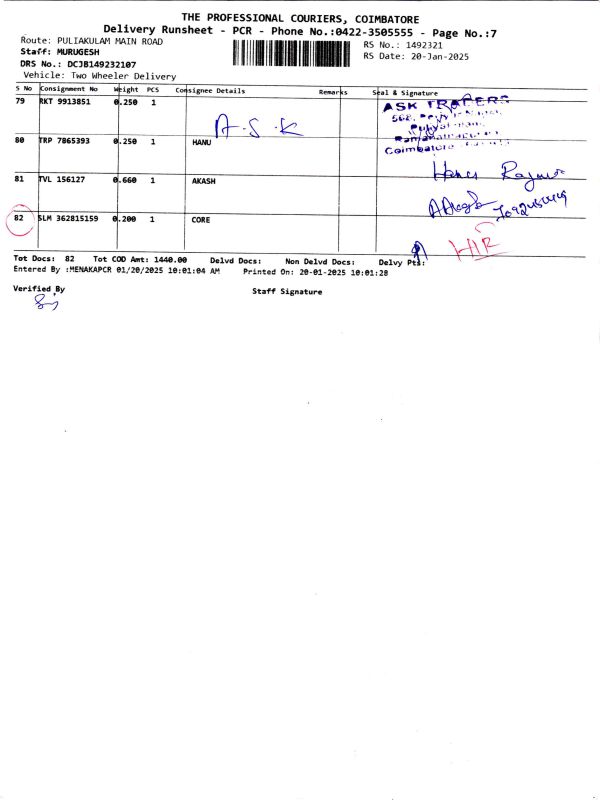 THE PROFESSIONAL COURIERS, COIMBATORE
Delivery Runsheet - PCR - Phone No.:0422-3505555 - Page No.:7
Route: PULIAKULAM MAIN ROAD
RS No.: 1492321
Staff: MURUGESH
RS Date: 20-Jan-2025
DRS No.: DCJB149232107
Vehicle: Two Wheeler Delivery
S No Consignment No Weight PCS Consignee Details Remarks Seal & Signature
79 RKT 9913851 0.250 1
A.S.K
ASK TRADERS
Coimbatore
80 TRP 7865393 0.250 1 HANU
81 TVL 156127 0.660 1 AKASH
82 SLM 362815159 0.200 1 CORE
HIR
Tot Docs: 82 Tot COD Amt: 1440.00 Delvd Docs: Non Delvd Docs: Delvy Pts:
Entered By :MENAKAPCR 01/20/2025 10:01:04 AM Printed On: 20-01-2025 10:01:28
Verified By
Staff Signature